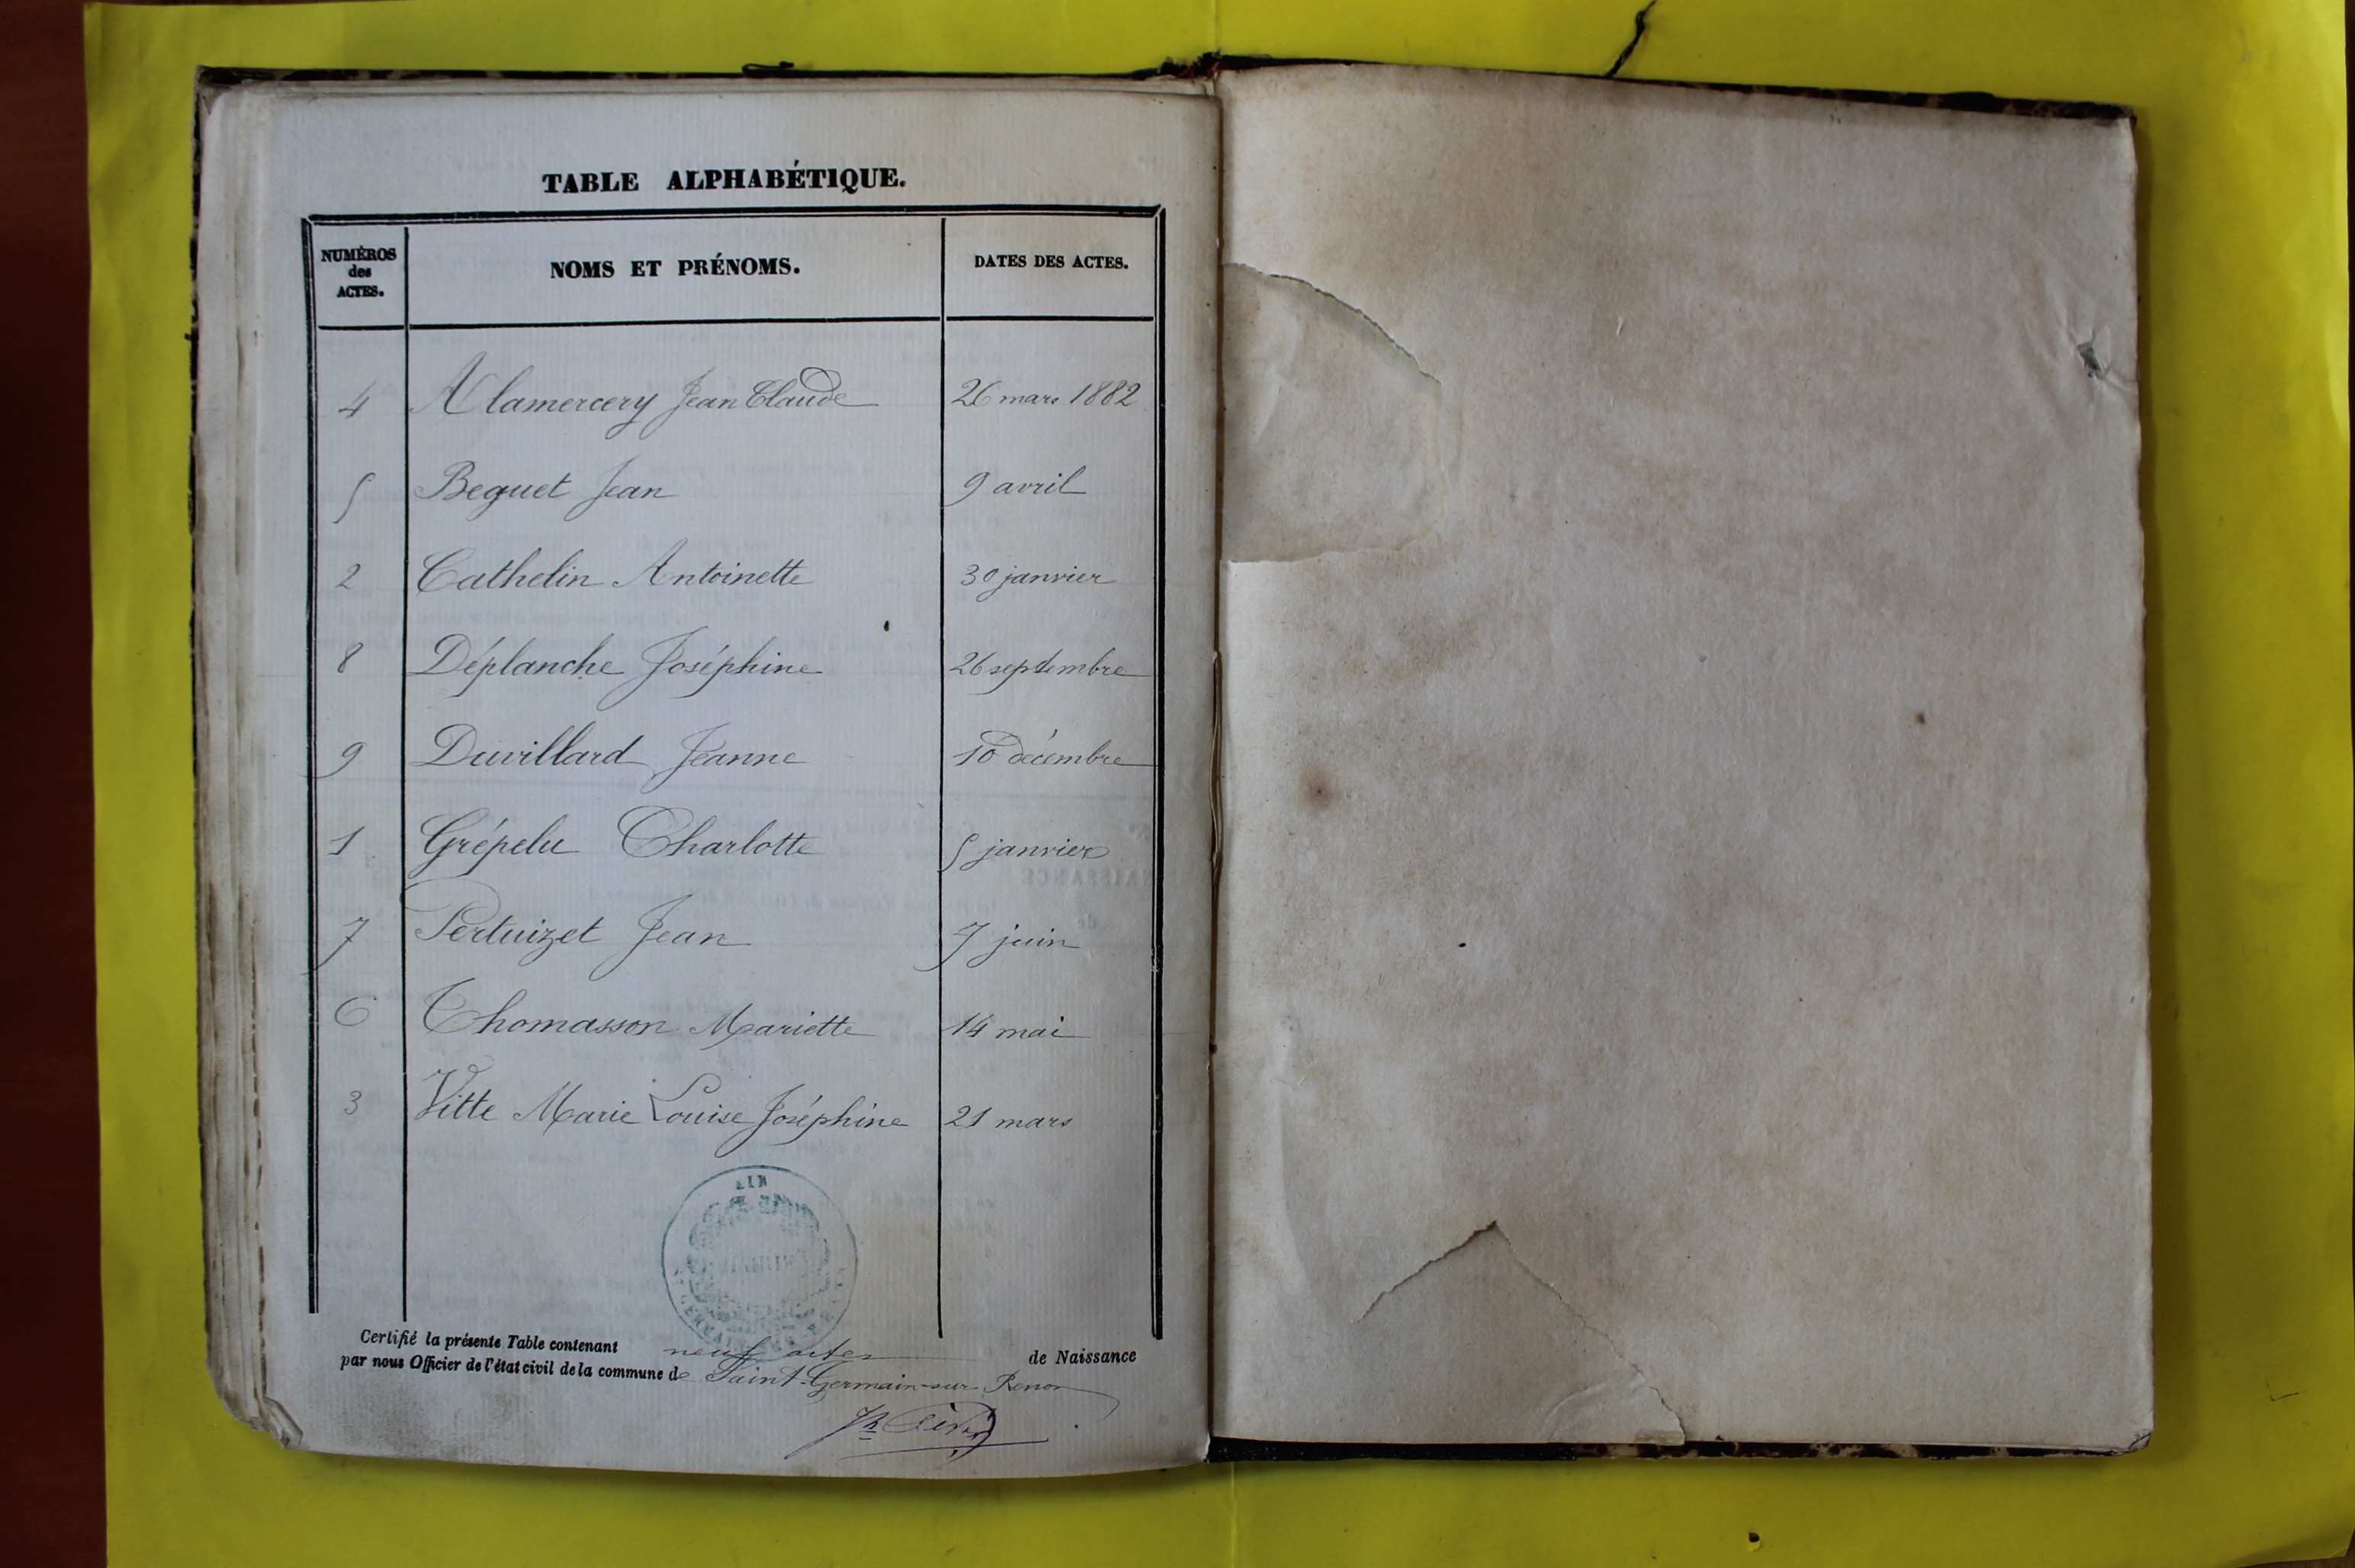 TABLE ALPHABÉTIQUE.
NUMÉROS des ACTES. NOMS ET PRÉNOMS. DATES DES ACTES.
4 Alamercery Jean Claude 26 mars 1882
5 Beguet Jean 9 avril
2 Cathelin Antoinette 30 janvier
8 Déplanche Joséphine 26 septembre
9 Duvillard Jeanne 10 décembre
1 Grépelu Charlotte 5 janvier
7 Pertuizet Jean 7 juin
6 Thomasson Mariette 14 mai
3 Vitte Marie Louise Joséphine 21 mars
AIN
MAIRIE
Certifié la présente Table contenant neuf actes de Naissance
par nous Officier de l'état civil de la commune de Saint-Germain-sur-Renon